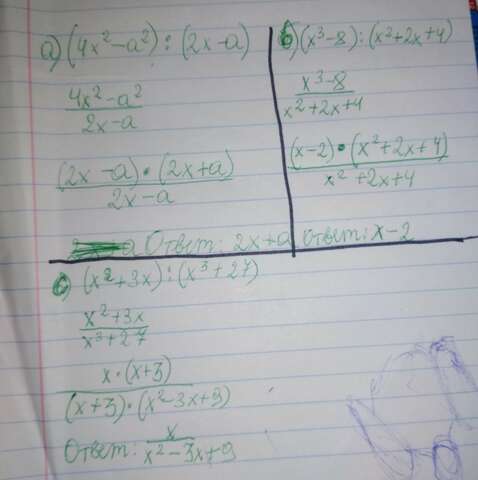 а) (4x²-a²) : (2x-a)
4x²-a²
2x-a
(2x-a)•(2x+a)
2x-a
a Ответ: 2x+a
б) (x³-8) : (x²+2x+4)
x³-8
x²+2x+4
(x-2)•(x²+2x+4)
x²+2x+4
Ответ: x-2
с (x²+3x) : (x³+27)
x²+3x
x³+27
x•(x+3)
(x+3)•(x²-3x+9)
Ответ: x
x²-3x+9